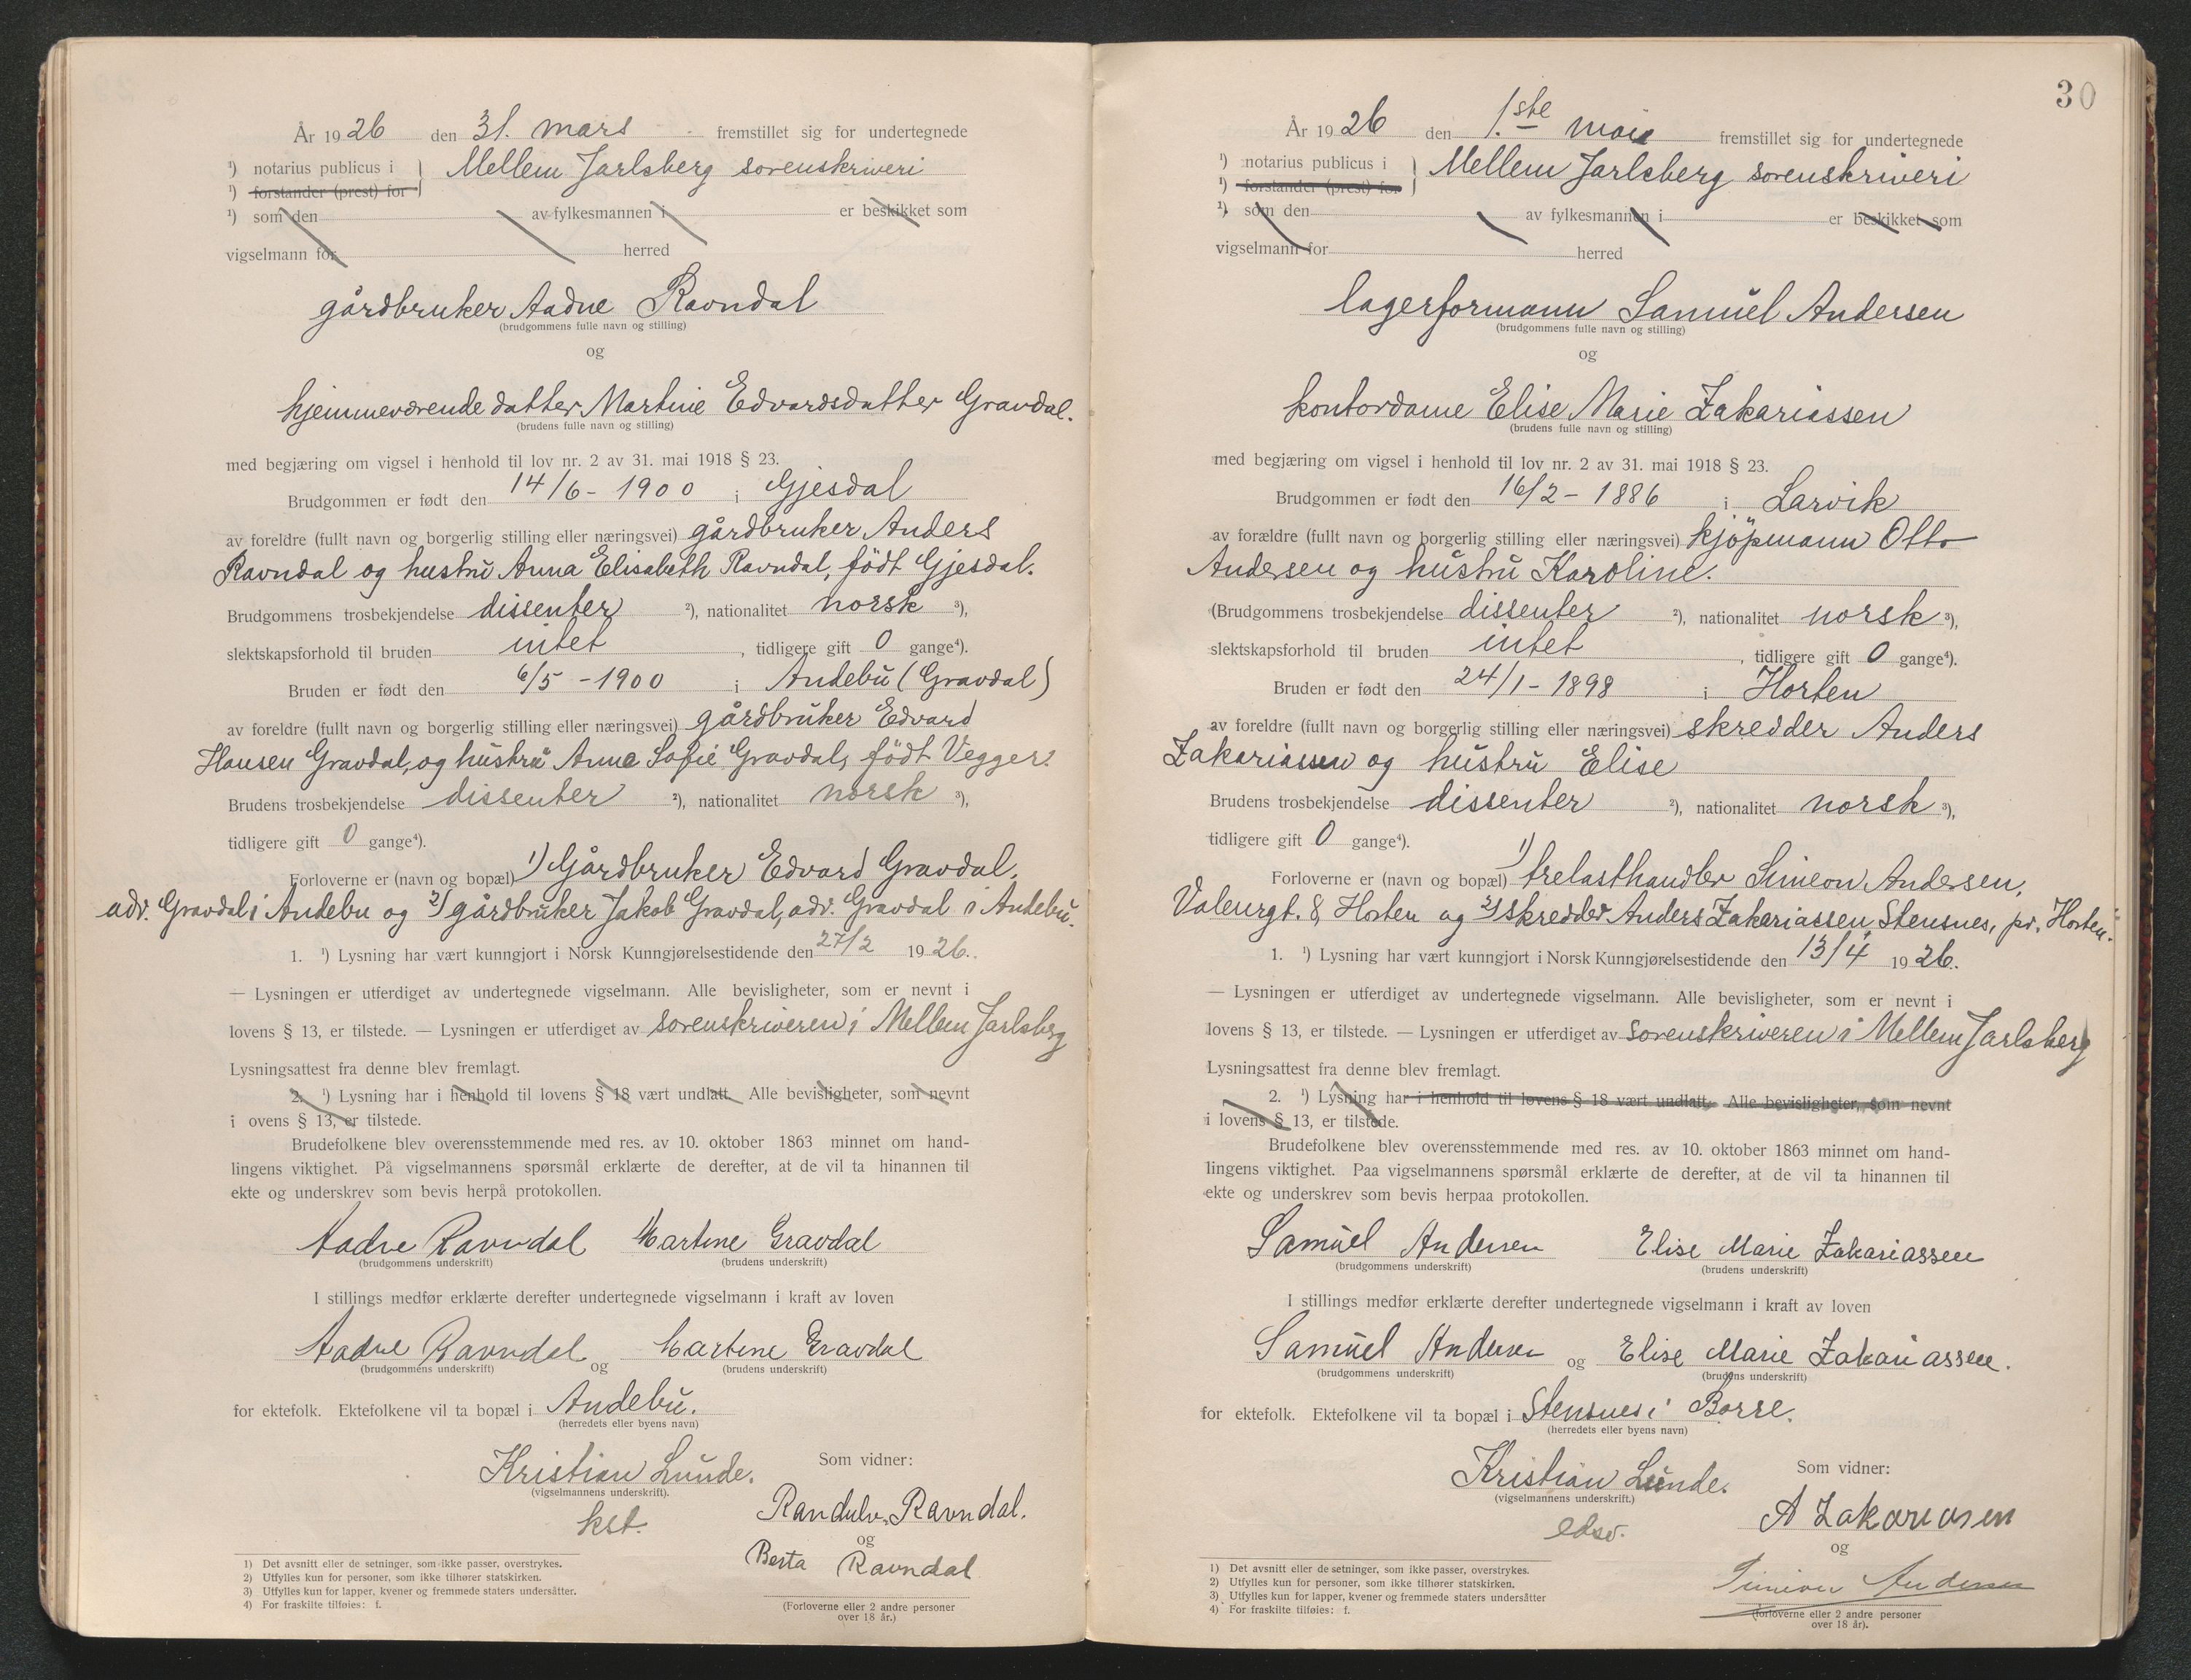 År 1926 den 31. mars fremstillet sig for undertegnede
¹) notarius publicus i } Mellem Jarlsberg sorenskriveri
¹) forstander (prest) for
¹) som den av fylkesmannen i er beskikket som
vigselmann for herred
gårdbruker Aadne Ravndal
(brudgommens fulle navn og stilling)
og
hjemmeværende datter Martine Edvardsdatter Gravdal.
(brudens fulle navn og stilling)
med begjæring om vigsel i henhold til lov nr. 2 av 31. mai 1918 § 23.
Brudgommen er født den 14/6 - 1900 i Gjesdal
av foreldre (fullt navn og borgerlig stilling eller næringsvei) gårdbruker Anders
Ravndal og hustru Anna Elisabeth Ravndal, födt Gjesdal.
Brudgommens trosbekjendelse dissenter ²), nationalitet norsk ³),
slektskapsforhold til bruden intet , tidligere gift 0 gange⁴).
Bruden er født den 6/5 - 1900 i Andebu (Gravdal)
av foreldre (fullt navn og borgerlig stilling eller næringsvei) gårdbruker Edvard
Hansen Gravdal, og hustru Anna Sofie Gravdal, födt Vegger.
Brudens trosbekjendelse dissenter ²), nationalitet norsk ³),
tidligere gift 0 gange⁴).
Forloverne er (navn og bopæl) 1) Gårdbruker Edvard Gravdal,
adr. Gravdal i Andebu og 2) gårdbruker Jakob Gravdal, adr. Gravdal i Andebu.
1. ¹) Lysning har vært kunngjort i Norsk Kunngjørelsestidende den 27/2 1926.
— Lysningen er utferdiget av undertegnede vigselmann. Alle bevisligheter, som er nevnt i
lovens § 13, er tilstede. — Lysningen er utferdiget av sorenskriveren i Mellem Jarlsberg
Lysningsattest fra denne blev fremlagt.
2. ¹) Lysning har i henhold til lovens § 18 vært undlatt. Alle bevisligheter, som nevnt
i ovens § 13, er tilstede.
Brudefolkene blev overensstemmende med res. av 10. oktober 1863 minnet om hand-
lingens viktighet. På vigselmannens spørsmål erklærte de derefter, at de vil ta hinannen til
ekte og underskrev som bevis herpå protokollen.
Aadne Ravndal Martine Gravdal
(brudgommens underskrift) (brudens underskrift)
I stillings medfør erklærte derefter undertegnede vigselmann i kraft av loven
Aadne Ravndal og Martine Gravdal
(brudgommens underskrift) (brudens underskrift)
for ektefolk. Ektefolkene vil ta bopæl i Andebu.
(herredets eller byens navn)
Kristian Lunde.
(vigselmannens underskrift).
kst.
Som vidner:
Randulv Ravndal.
og
Berta Ravndal
(Forloverne eller 2 andre personer
over 18 år.)
1) Det avsnitt eller de setninger, som ikke passer, overstrykes.
2) Utfylles kun for personer, som ikke tilhører statskirken.
3) Utfylles kun for lapper, kvener og fremmede staters undersåtter.
4) For fraskilte tilføies: f.
30
År 1926 den 1.ste mai fremstillet sig for undertegnede
¹) notarius publicus i } Mellem Jarlsberg sorenskriveri
¹) forstander (prest) for
¹) som den av fylkesmannen i er beskikket som
vigselmann for herred
lagerformann Samuel Andersen
(brudgommens fulle navn og stilling)
og
kontordame Elise Marie Zakariassen
(brudens fulle navn og stilling)
med begjæring om vigsel i henhold til lov nr. 2 av 31. mai 1918 § 23.
Brudgommen er født den 16/2 - 1886 i Larvik
av forældre (fullt navn og borgerlig stilling eller næringsvei) kjöpmann Otto
Andersen og hustru Karoline.
(Brudgommens trosbekjendelse dissenter ²), nationalitet norsk ³),
slektskapsforhold til bruden intet , tidligere gift 0 gange⁴).
Bruden er født den 24/1 - 1898 i Horten
av foreldre (fullt navn og borgerlig stilling eller næringsvei) skredder Anders
Zakariassen og hustru Elise
Brudens trosbekjendelse dissenter ²), nationalitet norsk ³),
tidligere gift 0 gange⁴).
Forloverne er (navn og bopæl) 1) trelasthandler Simeon Andersen,
Valeurgt. 8, Horten og 2) skredder Anders Zakariassen Stensnes, pr. Horten.
1. ¹) Lysning har vært kunngjort i Norsk Kunngjørelsestidende den 13/4 1926.
— Lysningen er utferdiget av undertegnede vigselmann. Alle bevisligheter, som er nevnt i
lovens § 13, er tilstede. — Lysningen er utferdiget av sorenskriveren i Mellem Jarlsberg
Lysningsattest fra denne blev fremlagt.
2. ¹) Lysning har i henhold til lovens § 18 vært undlatt. Alle bevisligheter, som nevnt
i lovens § 13, er tilstede.
Brudefolkene blev overensstemmende med res. av 10. oktober 1863 minnet om hand-
lingens viktighet. Paa vigselmannens spørsmål erklærte de derefter, at de vil ta hinannen til
ekte og underskrev som bevis herpaa protokollen.
Samuel Andersen Elise Marie Zakariassen
(brudgommens underskrift) (brudens underskrift)
I stillings medfør erklærte derefter undertegnede vigselmann i kraft av loven
Samuel Andersen og Elise Marie Zakariassen.
(brudgommens underskrift) (brudens underskrift)
for ektefolk. Ektefolkene vil ta bopæl i Stensnes i Borre.
(herredets eller byens navn)
Kristian Lunde.
(vigselmannens underskrift.)
Som vidner:
A Zakariasen
og
Simeon Andersen
(forloverne eller 2 andre personer
over 18 år).
1) Det avsnitt eller de setninger, som ikke passer, overstrykes.
2) Utfylles kun for personer, som ikke tilhører statskirken.
3) Utfylles kun for lapper, kvener og fremmede staters undersåtter
4) For fraskilte tilføies: f.